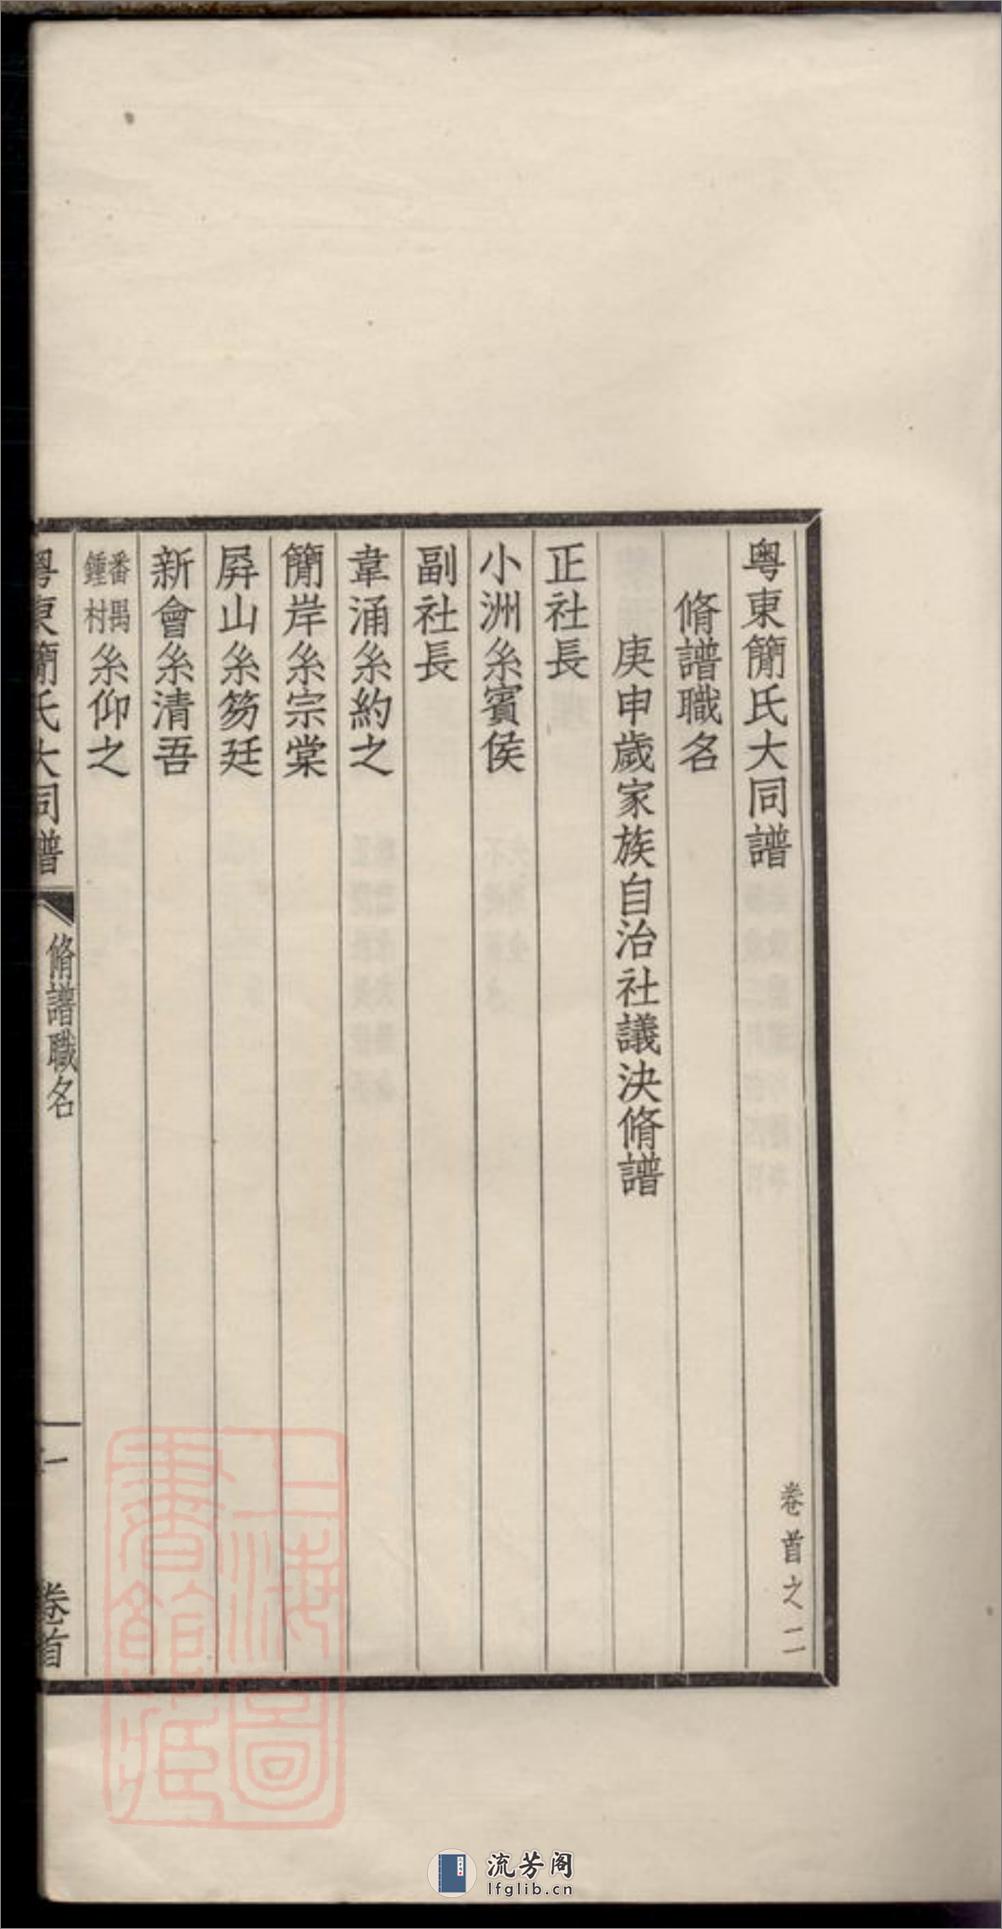 粵東簡氏大同譜
卷首之二
脩譜職名
庚申歲家族自治社議決脩譜
正社長
小洲糸賓侯
副社長
韋涌糸約之
簡岸糸宗棠
屛山糸笏廷
新會糸清吾
番禺鍾村糸仰之
粵東簡氏大同譜
脩譜職名
一
卷首
上海圖書館藏
流芳阁
lfglib.cn